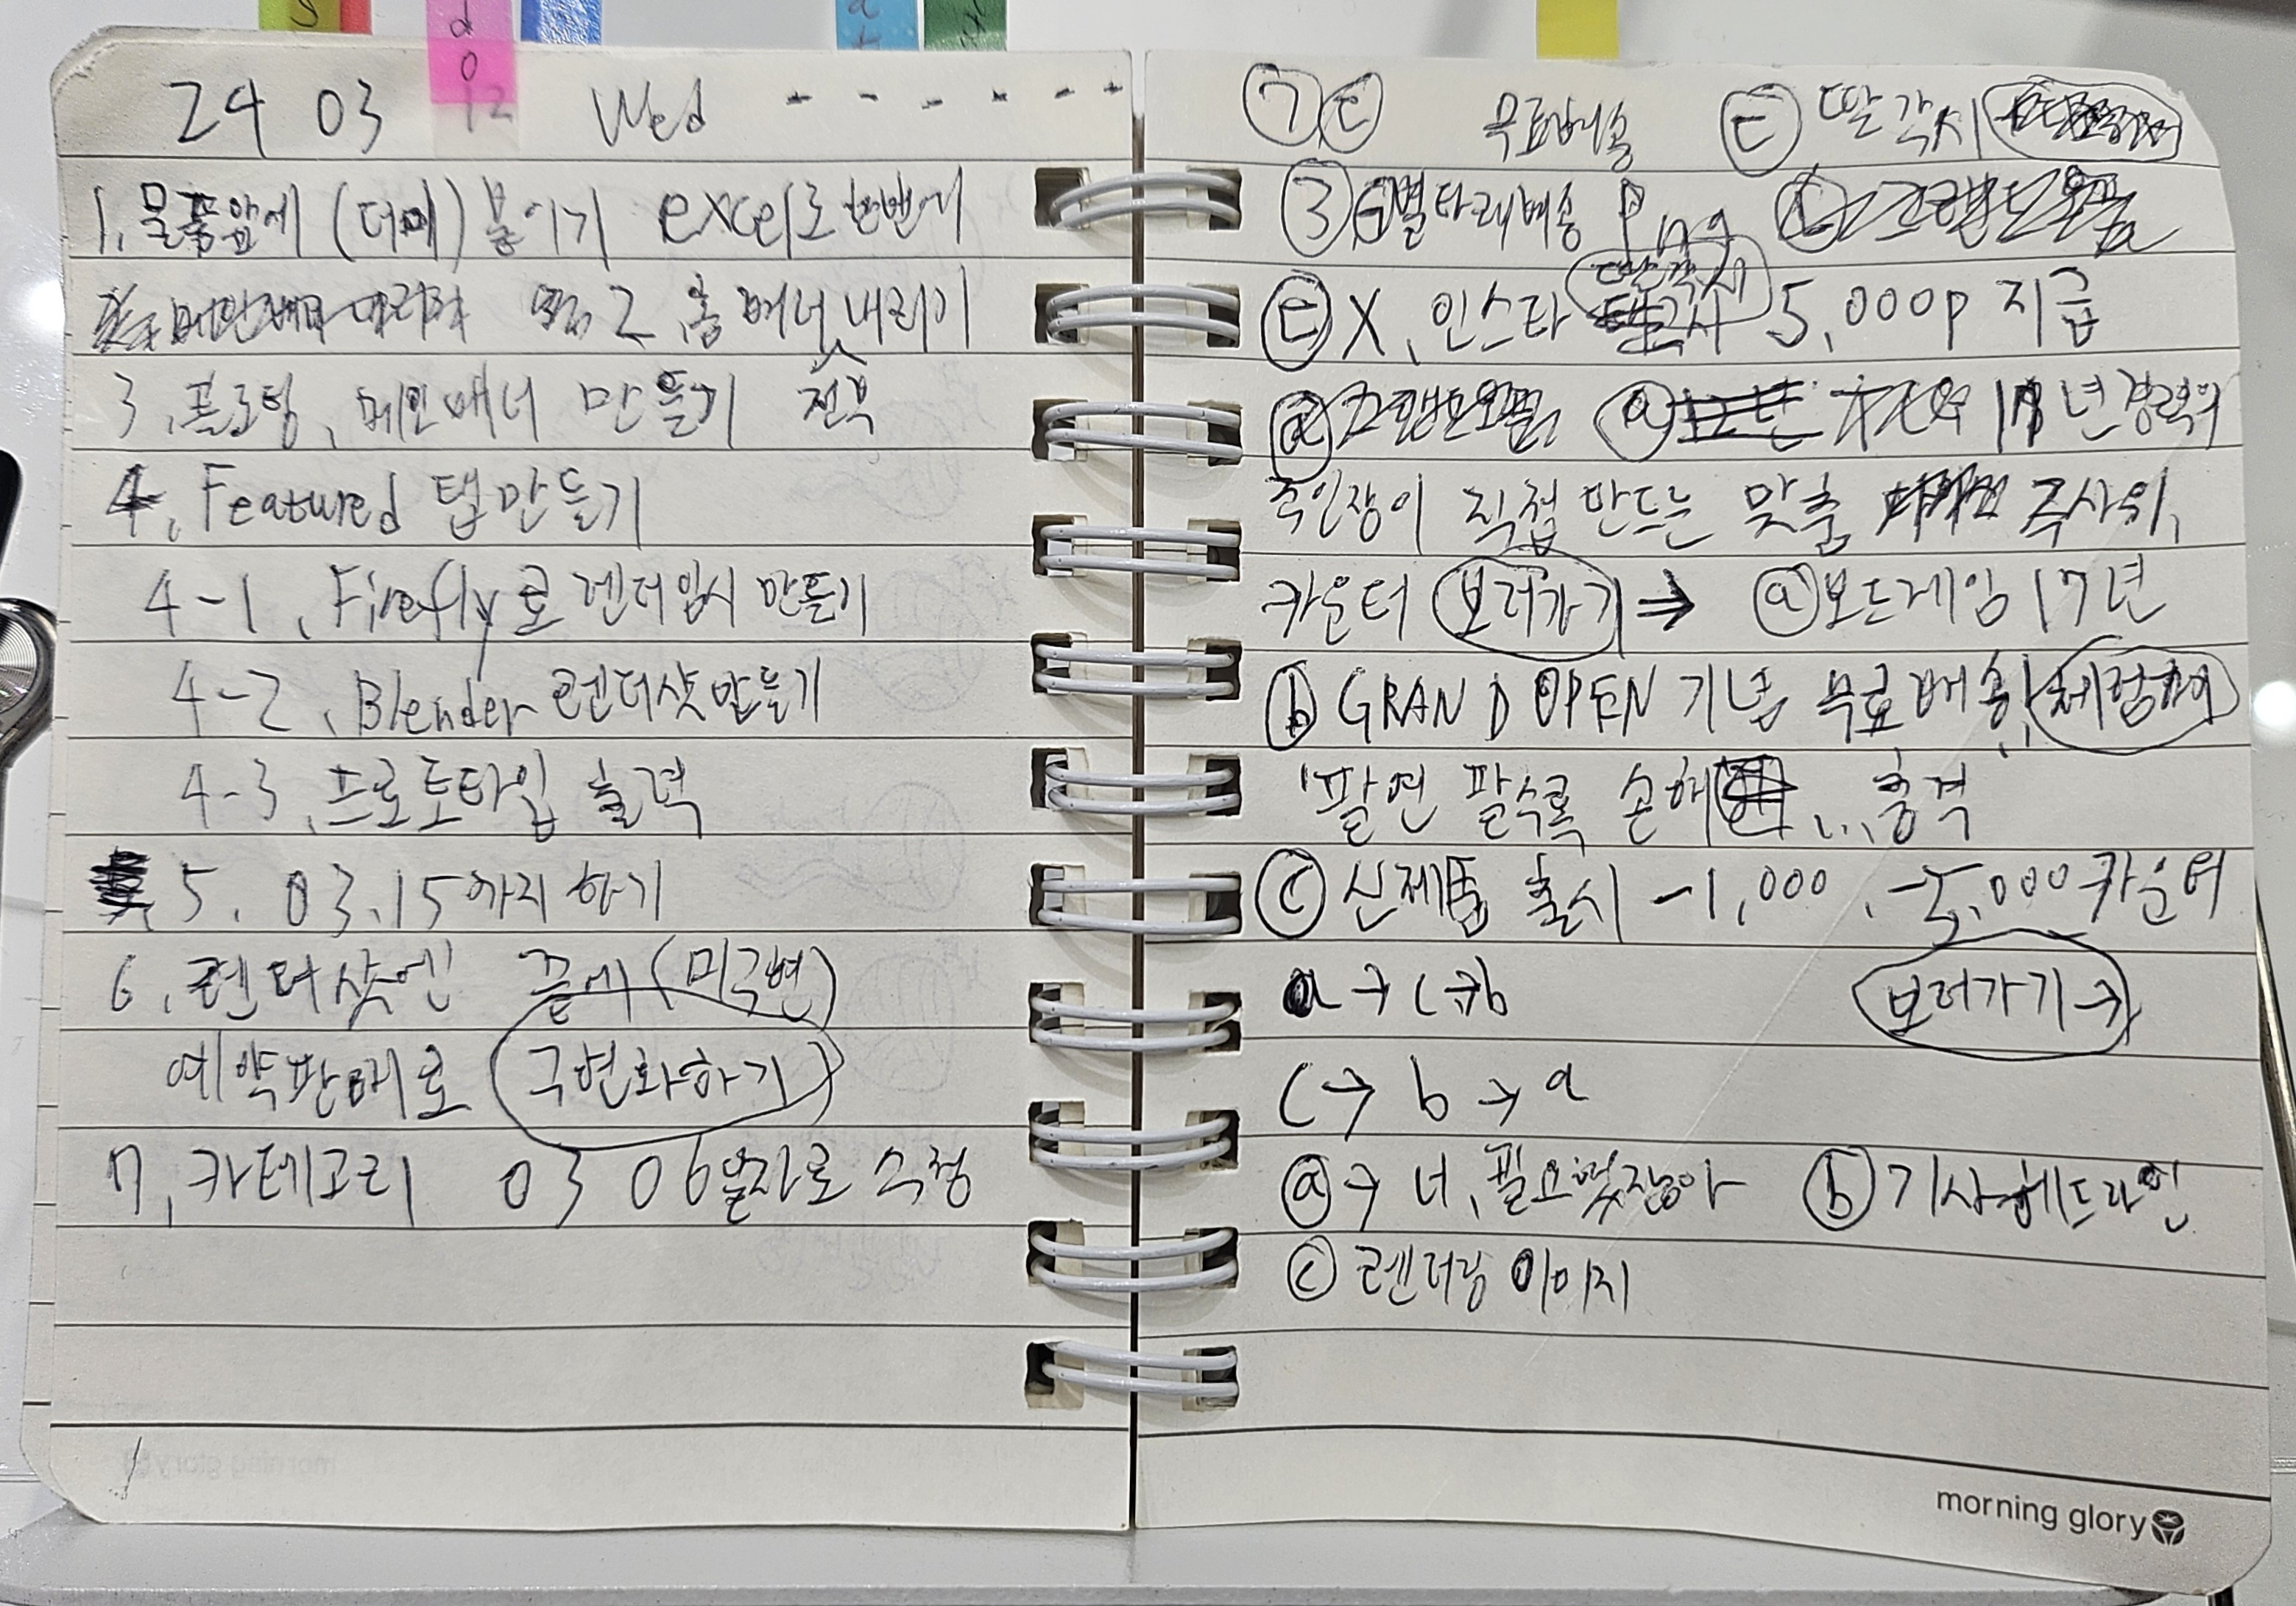 24 03 12 Wed
1. 물품앞에 (더미) 붙이기 excel로 한번에
2. 홈 배너 전부 내리기
3. 플로팅, 메인배너 만들기
4. Featured 탭만들기
4-1. Firefly로 렌더임시 만들기
4-2. Blender 렌더샷만들기
4-3. 프로토타입 출력
5. 03.15까지 하기
6. 렌더샷엔 끝에 (미구현)
예약판매로 구변화하기
7. 카테고리 03 06일자로 수정
⑦ ⓔ 무료배송 ⓔ 딸각시
③ 별타래배송 Png
ⓔ X, 인스타 5,000p 지급
ⓐ 17년경력의
주인장이 직접 만드는 맞춤 주사위,
카운터 보러가기 → ⓐ 보드게임 17년
ⓑ GRAND OPEN 기념 무료배송!
'팔면 팔수록 손해 ... 충격
ⓒ 신제품 출시 -1,000, -5,000 카운터
a → c → b 보러가기 →
c → b → a
ⓐ → 너, 필요했잖아 ⓑ 기사헤드라인
ⓒ 렌더링 이미지
morning glory